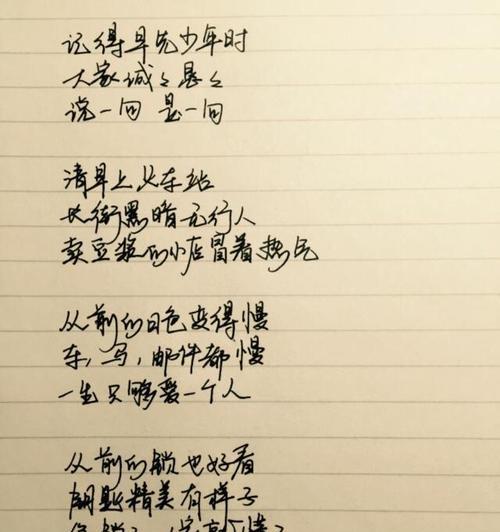 记得早先少年时
大家诚々恳々
说一句 是一句
清早上火车站
长街黑暗无行人
卖豆浆的小店冒着热气
从前的日色变得慢
车,马,邮件都慢
一生只够爱一个人
从前的锁也好看
钥匙精美有样子
你锁了